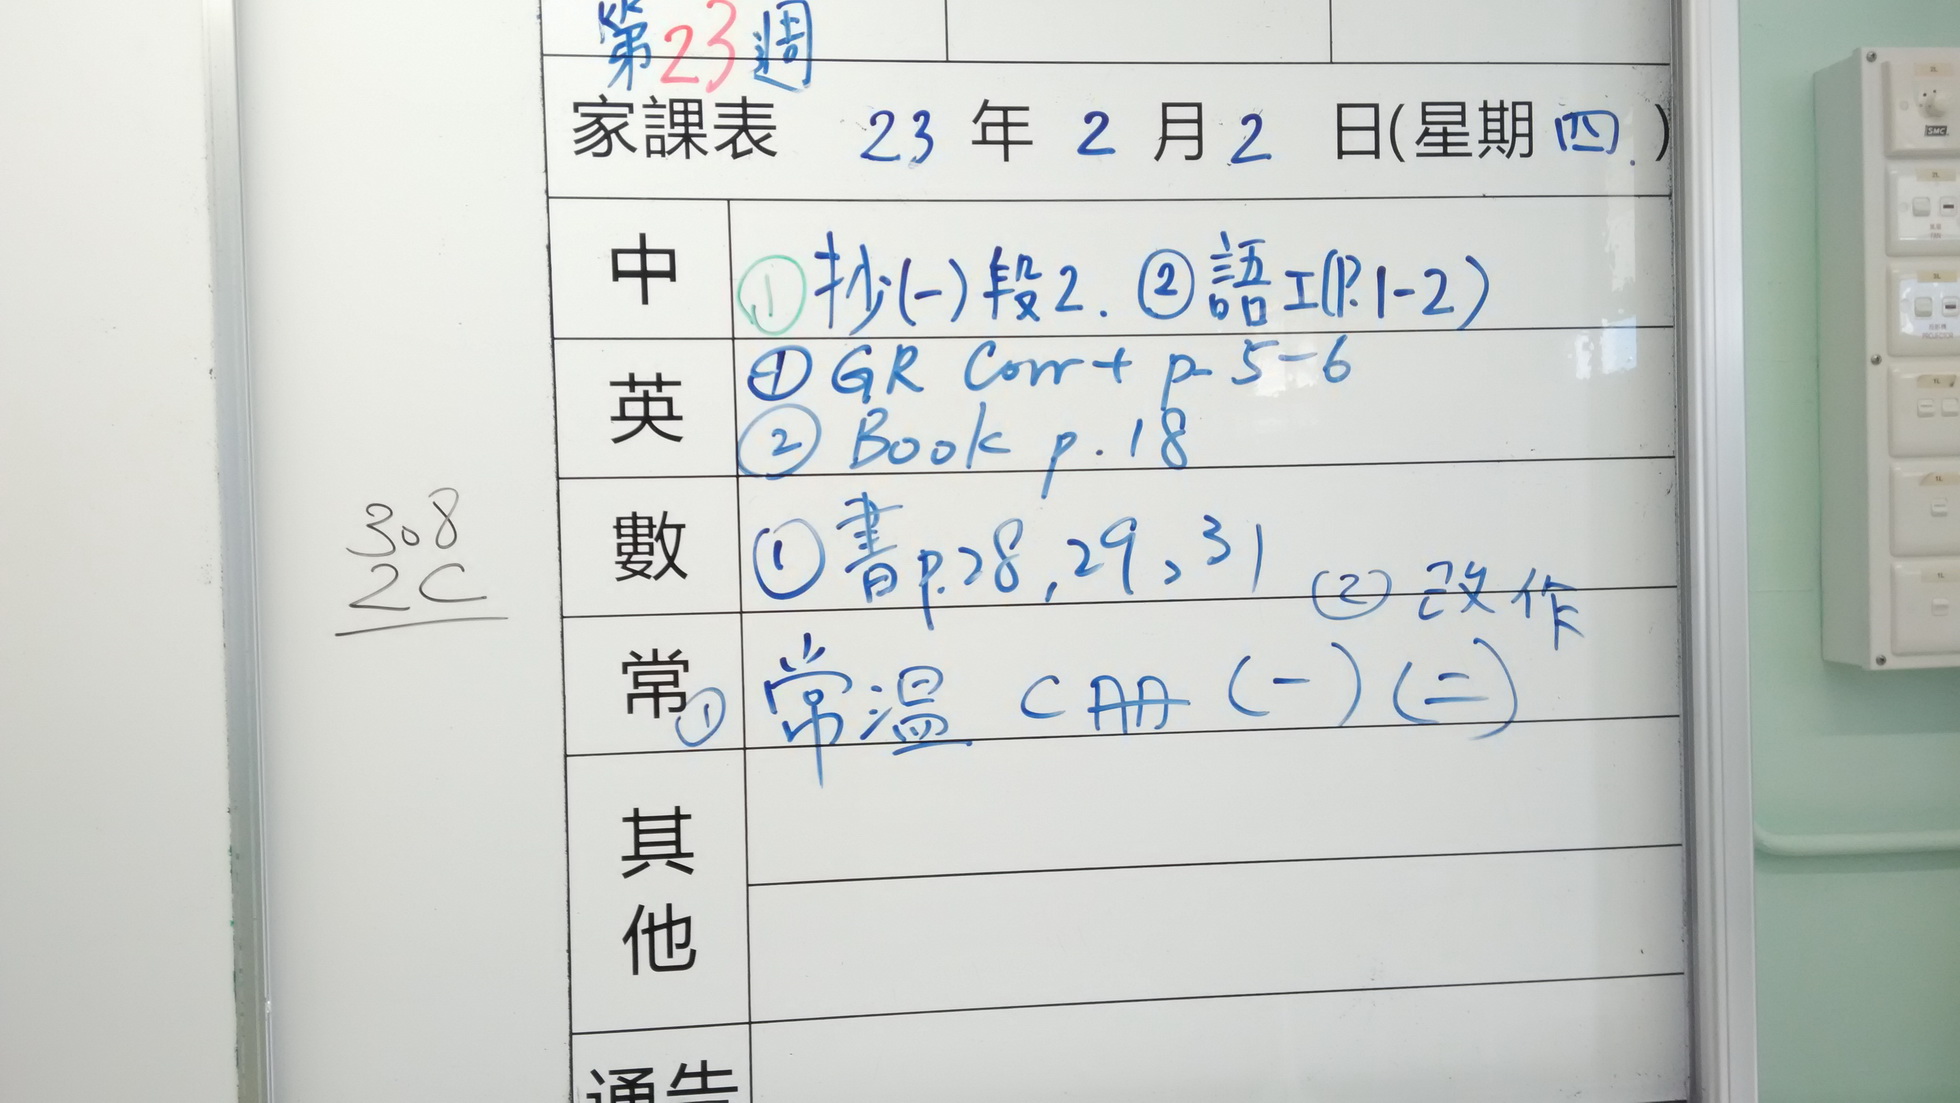 第23週
家課表 23 年 2 月 2 日(星期 四.)
中 ①抄(一)段2. ②語工(P.1-2)
英 ① GR Corr + p. 5-6
② Book p. 18
數 ①書p.28,29,31 ② 改作
常 ① 常溫 C冊 (一)(二)
其他
通告
308
2C
SMC